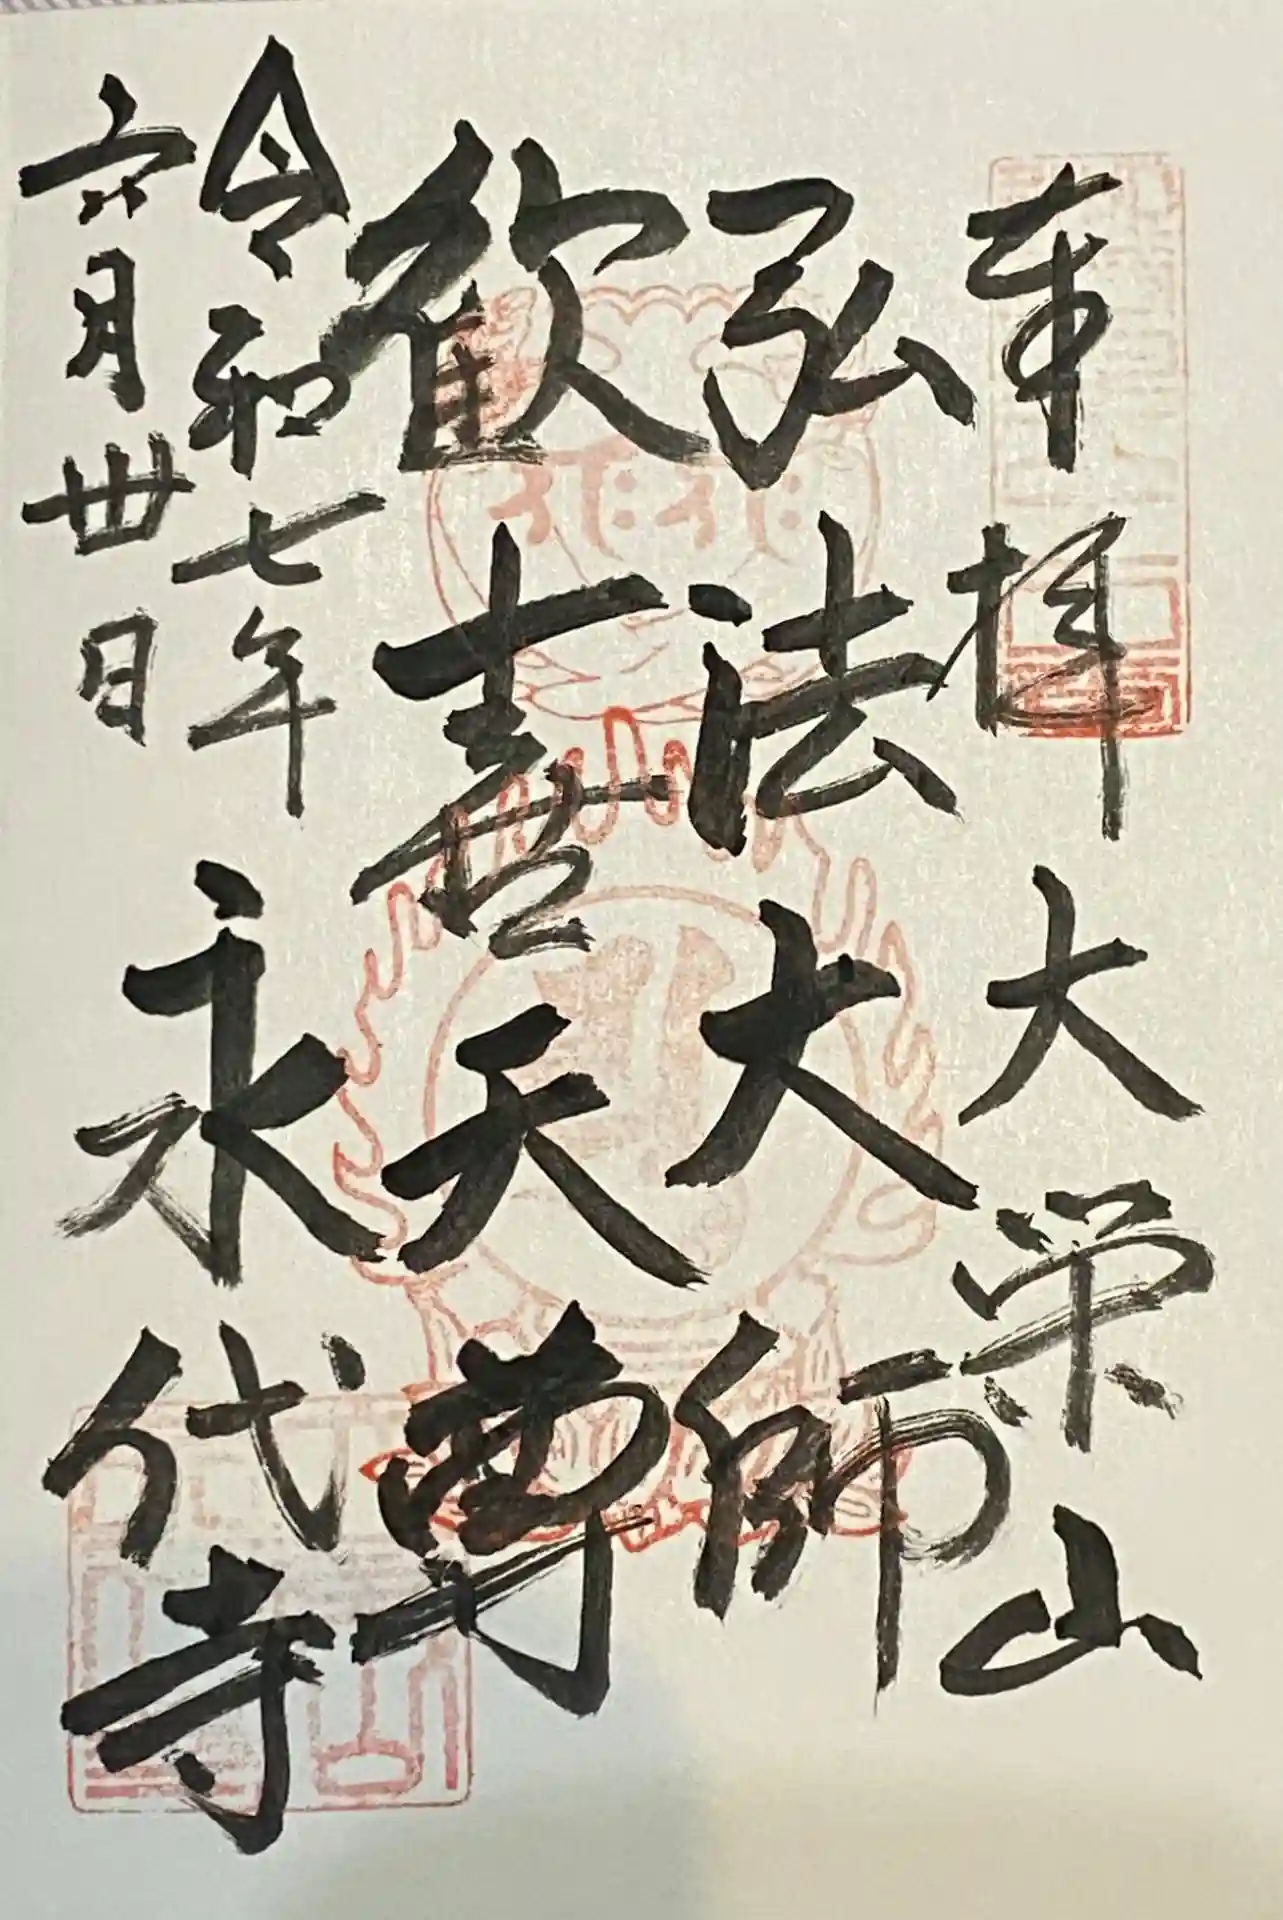 奉拝 大栄山
弘法大師
歓喜天尊
令和七年
六月卅日
永代寺